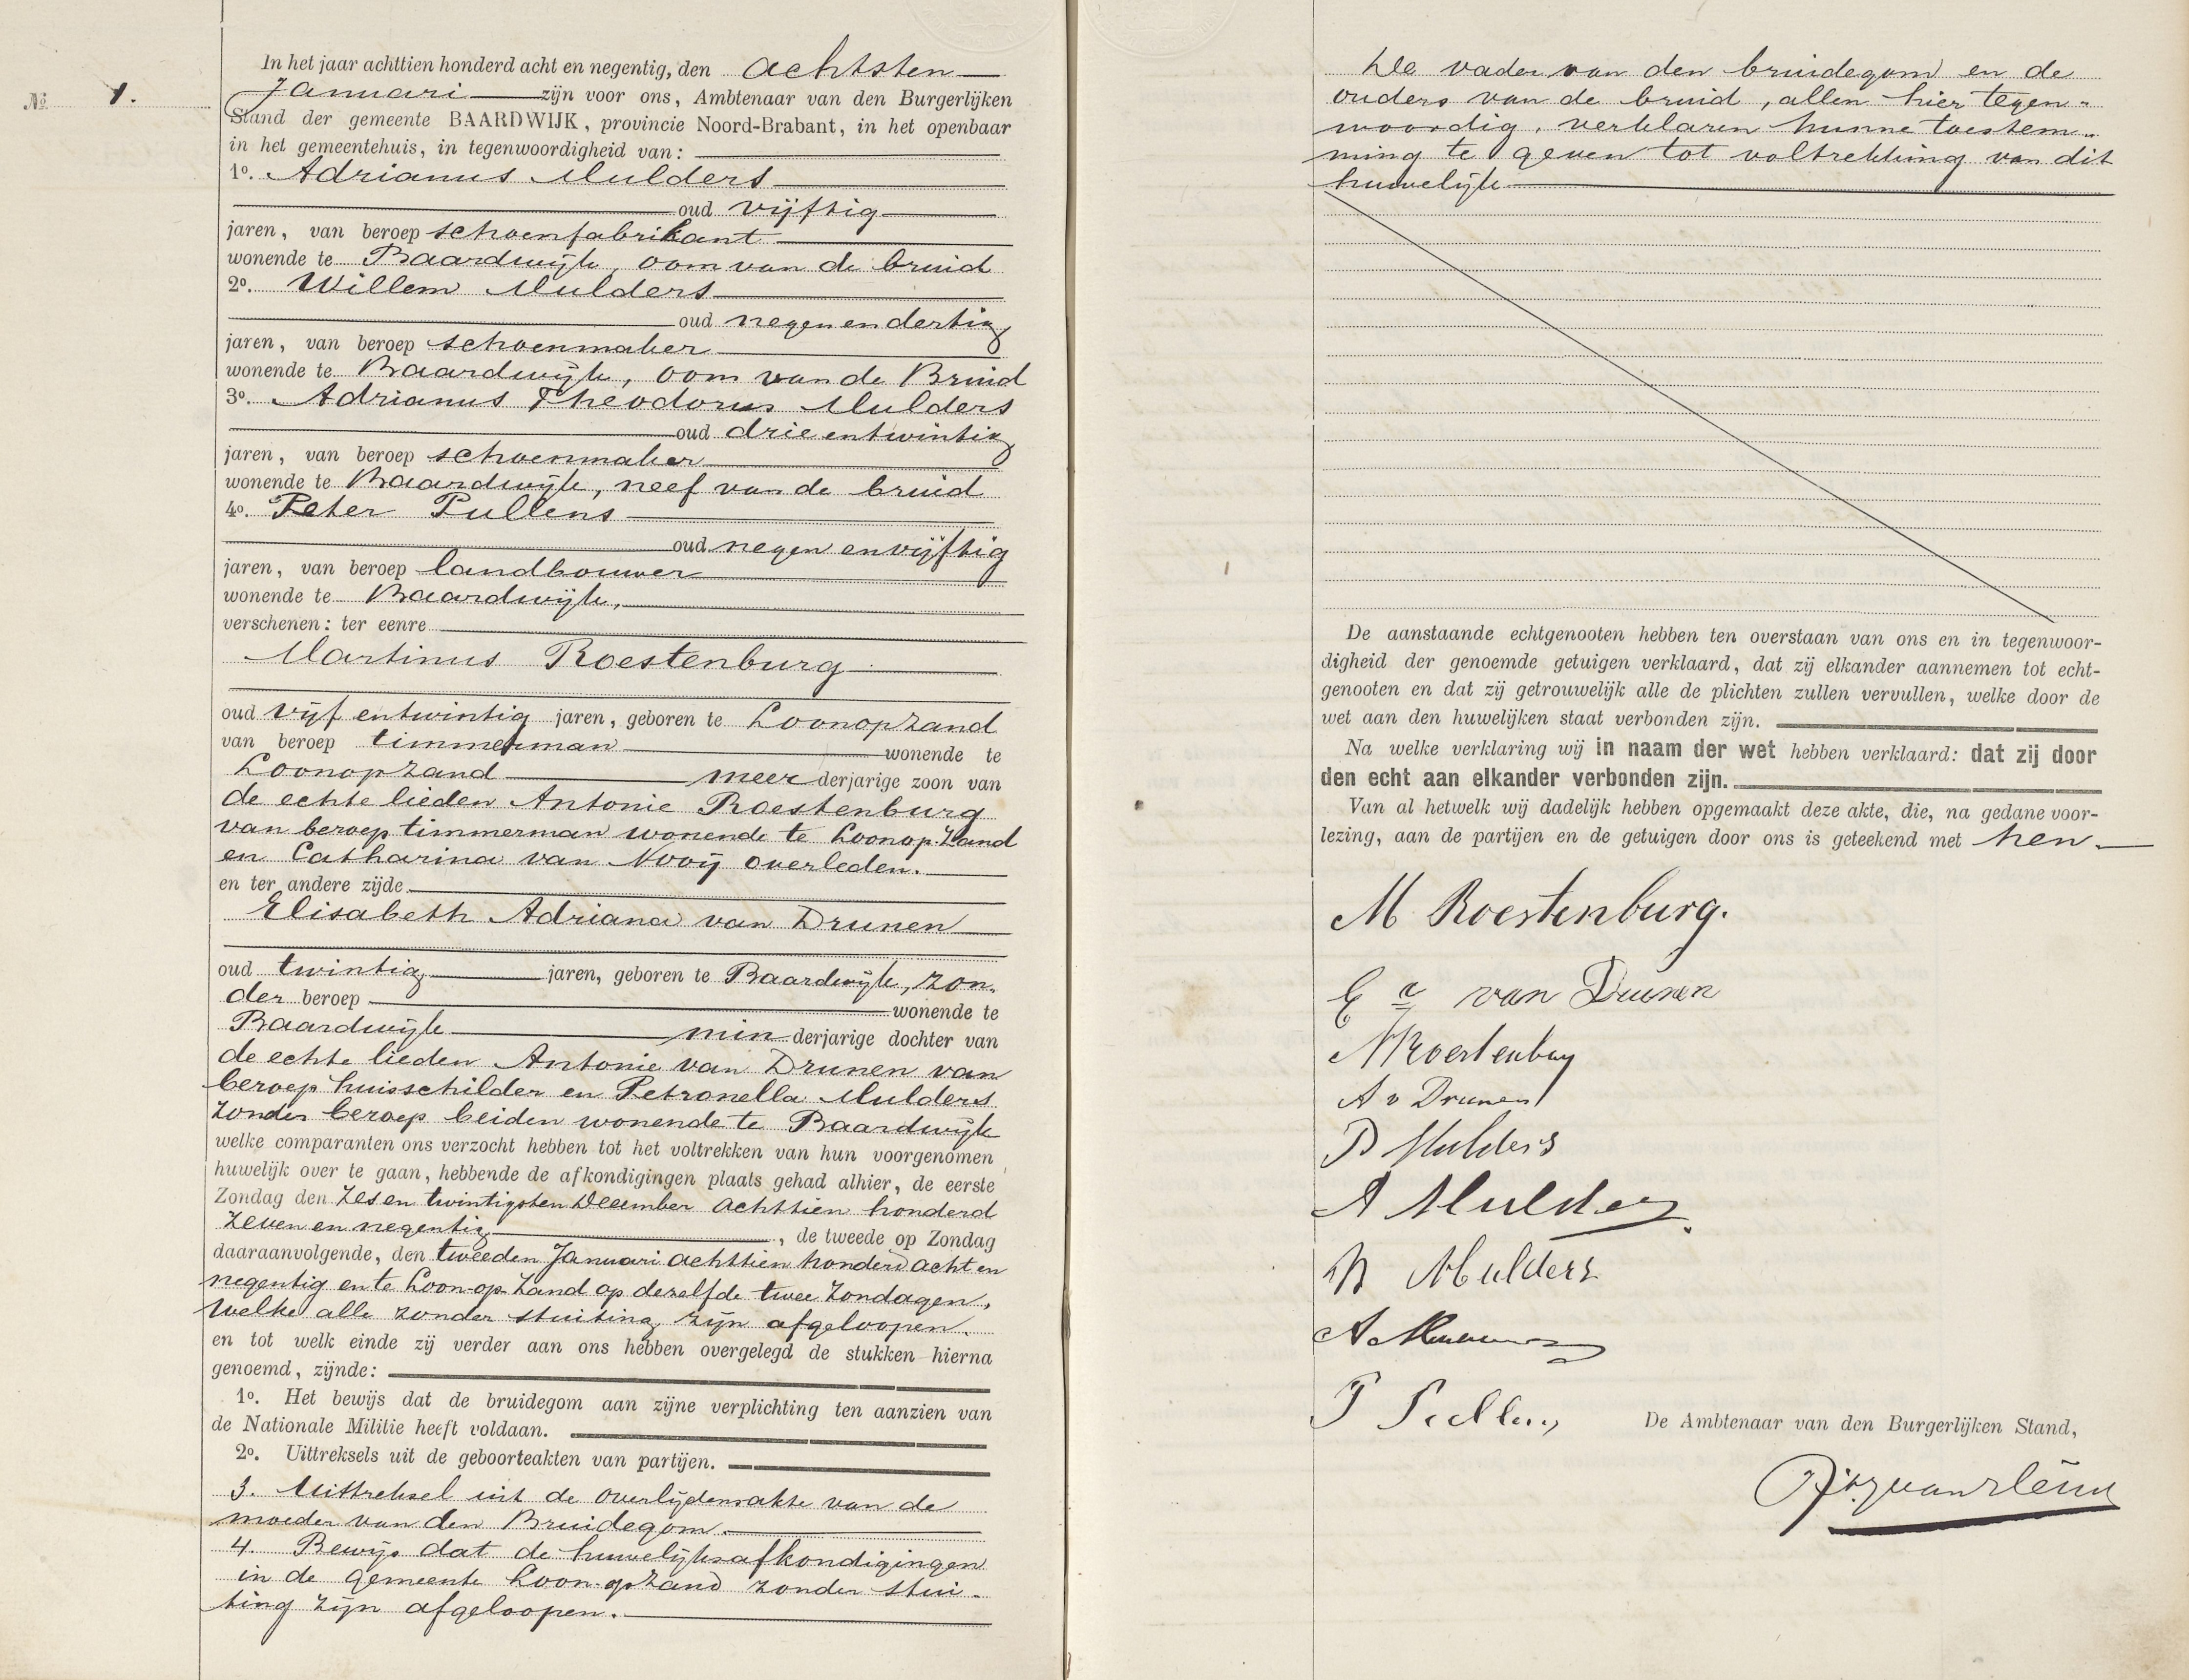 In het jaar achttien honderd acht en negentig, den achtsten
Nº. 1.
Januari zijn voor ons, Ambtenaar van den Burgerlijken
Stand der gemeente BAARDWIJK, provincie Noord-Brabant, in het openbaar
in het gemeentehuis, in tegenwoordigheid van:
1º. Adrianus Mulders
oud vijftig
jaren, van beroep schoenfabrikant
wonende te Baardwijk, oom van de bruid
2º. Willem Mulders
oud negen en dertig
jaren, van beroep schoenmaker
wonende te Baardwijk, oom van de Bruid
3º. Adrianus Theodorus Mulders
oud drie en twintig
jaren, van beroep schoenmaker
wonende te Baardwijk, neef van de bruid
4º. Peter Pullens
oud negen en vijftig
jaren, van beroep landbouwer
wonende te Baardwijk,
verschenen: ter eenre
Martinus Roestenburg
oud vijf en twintig jaren, geboren te Loonopzand
van beroep timmerman wonende te
Loonopzand meerderjarige zoon van
de echte lieden Antonie Roestenburg
van beroep timmerman wonende te Loonop-Zand
en Catharina van Nooij overleden.
en ter andere zijde
Elisabeth Adriana van Drunen
oud twintig jaren, geboren te Baardwijk, zon-
der beroep wonende te
Baardwijk minderjarige dochter van
de echte lieden Antonie van Drunen van
beroep huisschilder en Petronella Mulders
zonder beroep beiden wonende te Baardwijk
welke comparanten ons verzocht hebben tot het voltrekken van hun voorgenomen
huwelijk over te gaan, hebbende de afkondigingen plaats gehad alhier, de eerste
Zondag den zes en twintigsten December achttien honderd
zeven en negentig, de tweede op Zondag
daaraanvolgende, den tweeden Januari achttien honderd acht en
negentig en te Loon-op-Zand op dezelfde twee Zondagen,
welke alle zonder stuiting zijn afgeloopen.
en tot welk einde zij verder aan ons hebben overgelegd de stukken hierna
genoemd, zijnde:
1º. Het bewijs dat de bruidegom aan zijne verplichting ten aanzien van
de Nationale Militie heeft voldaan.
2º. Uittreksels uit de geboorteakten van partijen.
3. Uittreksel uit de overlijdensakte van de
moeder van den Bruidegom.
4. Bewijs dat de huwelijksafkondigingen
in de gemeente Loon-op-Zand zonder stui-
ting zijn afgeloopen.
De vader van den bruidegom en de
ouders van de bruid, allen hier tegen-
woordig, verklaren hunne toestem-
ming te geven tot voltrekking van dit
huwelijk
De aanstaande echtgenooten hebben ten overstaan van ons en in tegenwoor-
digheid der genoemde getuigen verklaard, dat zij elkander aannemen tot echt-
genooten en dat zij getrouwelijk alle de plichten zullen vervullen, welke door de
wet aan den huwelijken staat verbonden zijn.
Na welke verklaring wij in naam der wet hebben verklaard: dat zij door
den echt aan elkander verbonden zijn.
Van al hetwelk wij dadelijk hebben opgemaakt deze akte, die, na gedane voor-
lezing, aan de partijen en de getuigen door ons is geteekend met hen.
M Roestenburg.
E a van Drunen
A Roestenburg
A v Drunen
P Mulders
A Mulders
W Mulders
A Mulders
P Pullens
De Ambtenaar van den Burgerlijken Stand,